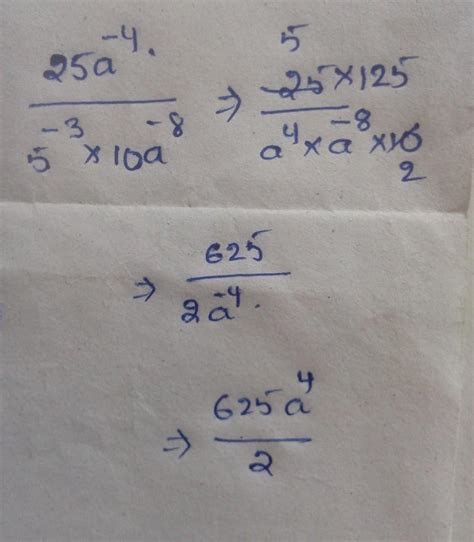 25a⁻⁴ / 5⁻³ × 10a⁻⁸ ⇒ 5 25 × 125 / a⁴ × a⁻⁸ × 10 2
⇒ 625 / 2a⁻⁴
⇒ 625a⁴ / 2